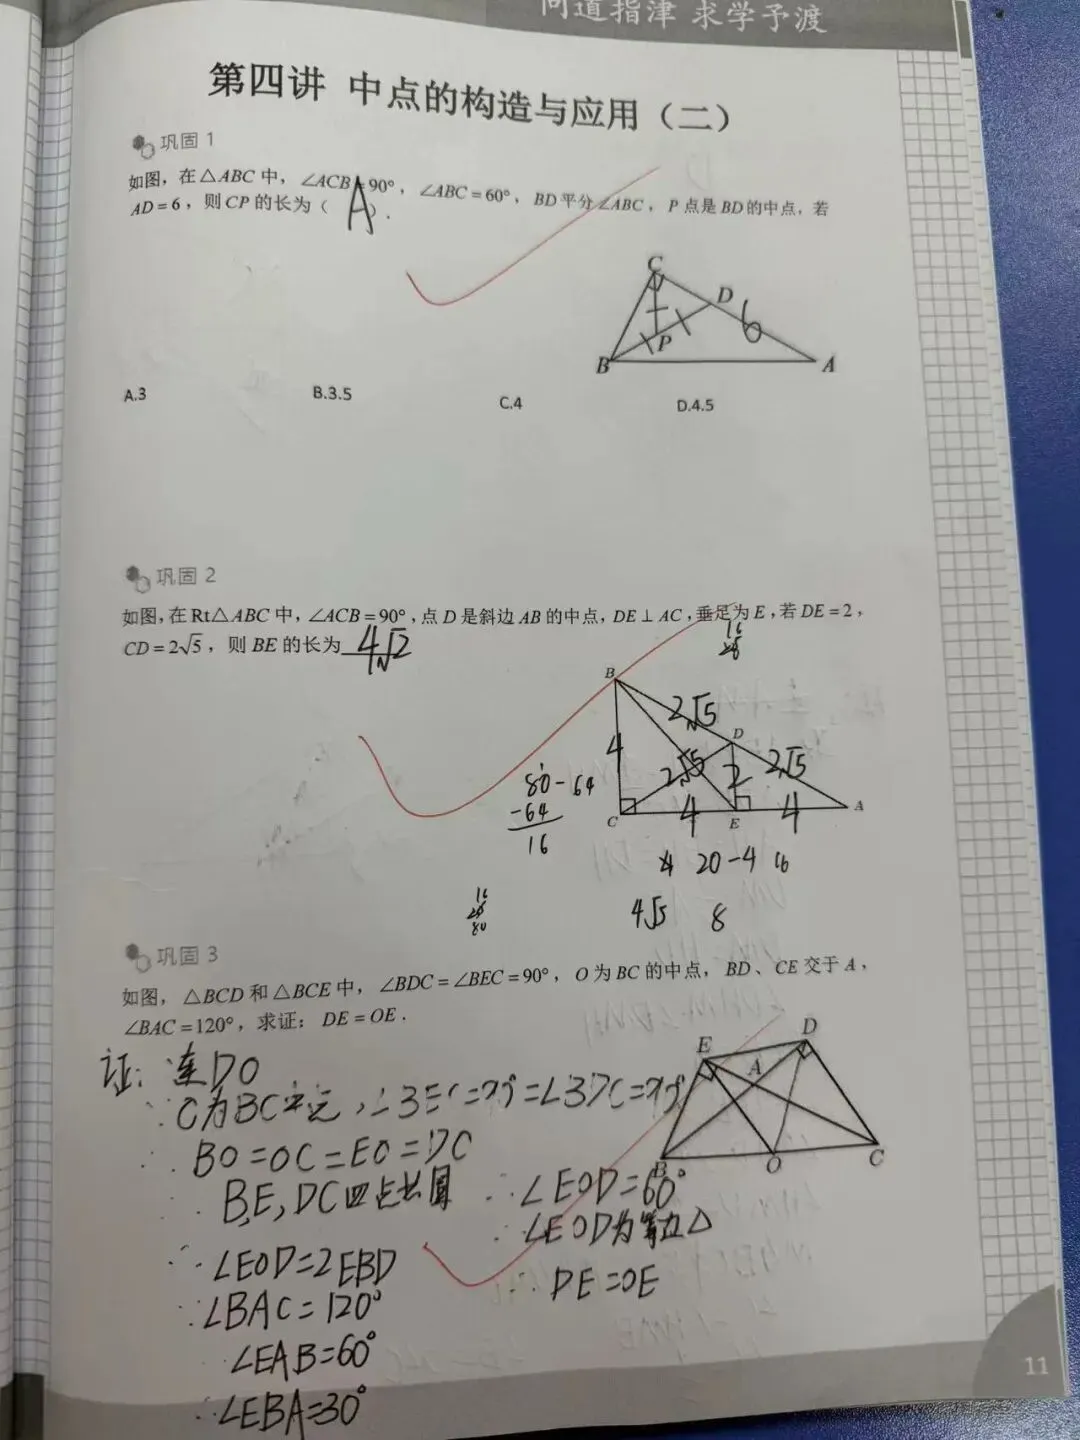 问道指津 求学予渡
第四讲 中点的构造与应用（二）
巩固 1
如图，在△ABC 中，∠ACB=90°，∠ABC=60°，BD平分∠ABC，P点是BD的中点，若
AD=6，则CP的长为（ A ）.
C
D
6
P
B
A
A.3
B.3.5
C.4
D.4.5
巩固 2
如图，在Rt△ABC中，∠ACB=90°，点D是斜边AB的中点，DE⊥AC，垂足为E，若DE=2，
CD=2√5，则BE的长为 4√2
16
B
2√5
D
4
2√5
2
2√5
80-64
-64
16
C
4
E
4
A
4 20-4 16
4√5 8
16
80
巩固 3
如图，△BCD和△BCE中，∠BDC=∠BEC=90°，O为BC的中点，BD、CE交于A，
∠BAC=120°，求证：DE=OE.
E
A
D
B
O
C
证：连DO
∵O为BC中点，∠BEC=90°=∠BDC=90°
∴BO=OC=EO=DO
B,E,DC四点共圆
∴∠EOD=2EBD
∵∠BAC=120°
∠EAB=60°
∴∠EBA=30°
∴∠EOD=60°
∴∠EOD为等边△
∴DE=OE
11